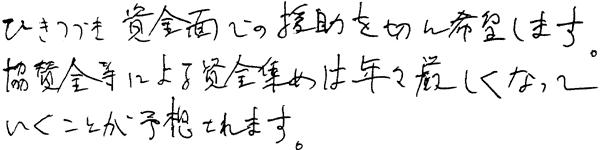 ひきつづき資金面での援助を切に希望します。
協賛金等による資金集めは年々厳しくなって
いくことが予想されます。